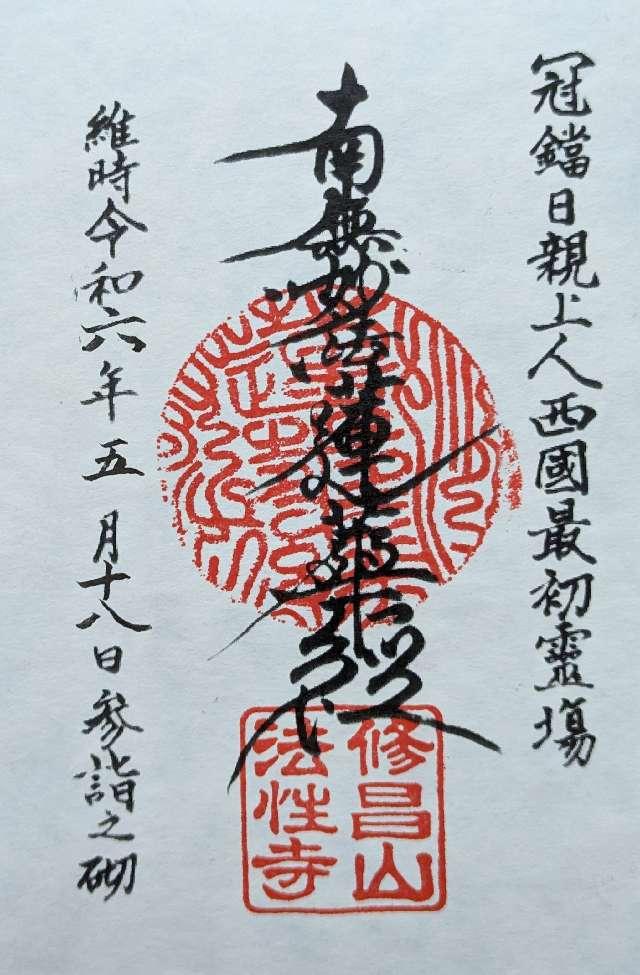 冠鐺日親上人西國最初靈場
南無妙法蓮華経
修昌山
法性寺
維時令和六年五月十八日参詣之砌